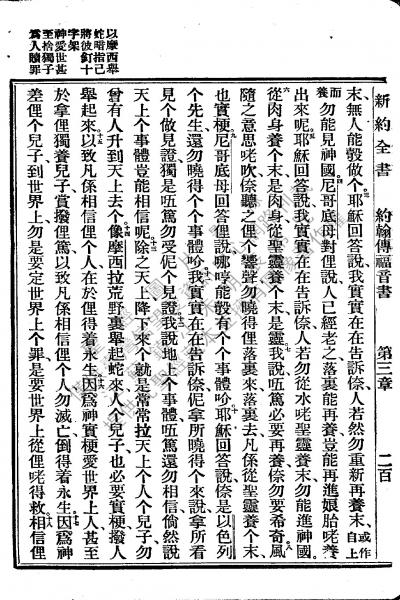 新約全書 約翰傳福音書 第三章 二百
以摩西舉
蛇暗指己
將彼釘十
字架
神愛世甚
至捨獨子
爲人贖罪
末、無人能彀做個、耶穌回答說、我實實在在告訴倷、人若然勿重新再養末、或作自上
而養 勿能見神國、尼哥底母對俚說、人已經老之、落裏能再養、豈能再進娘胎咾養
出來呢、耶穌回答說、我實實在在告訴倷、人若勿從水咾聖靈養個末、勿能進神國、
從肉身養個末、是肉身、從聖靈養個末、是靈、我說唔篤必要再養、倷勿要希奇、風
隨之意思咾吹、倷聽之俚個響聲、勿曉得俚落裏來、落裏去、凡係從聖靈養個末、
也實梗、尼哥底母回答俚說、哪哼能彀有個個事體吤、耶穌回答說、倷是以色列
個先生、還勿曉得個個事體吤、我實實在在告訴倷、伲拿所曉得個來說、拿所看
見個做見證、獨是唔篤勿受伲個見證、我說地上個事體、唔篤還勿相信、倘然說
天上個事體、豈能相信呢、除之天上降下來個、就是常常拉天上個人個兒子、勿
曾有人升到天上去個、像摩西拉荒野裏舉起蛇來、人個兒子也必要實梗撥人
舉起來、以致凡係相信俚個人、在於俚得着永生、因爲神實梗愛世界上人、甚至
於拿俚獨養兒子賞撥俚篤、以致凡係相信俚個人、勿滅亡、倒得着永生、因爲神
差俚個兒子到世界上、勿是要定世界上個罪、是要世界上從俚咾得救、相信俚